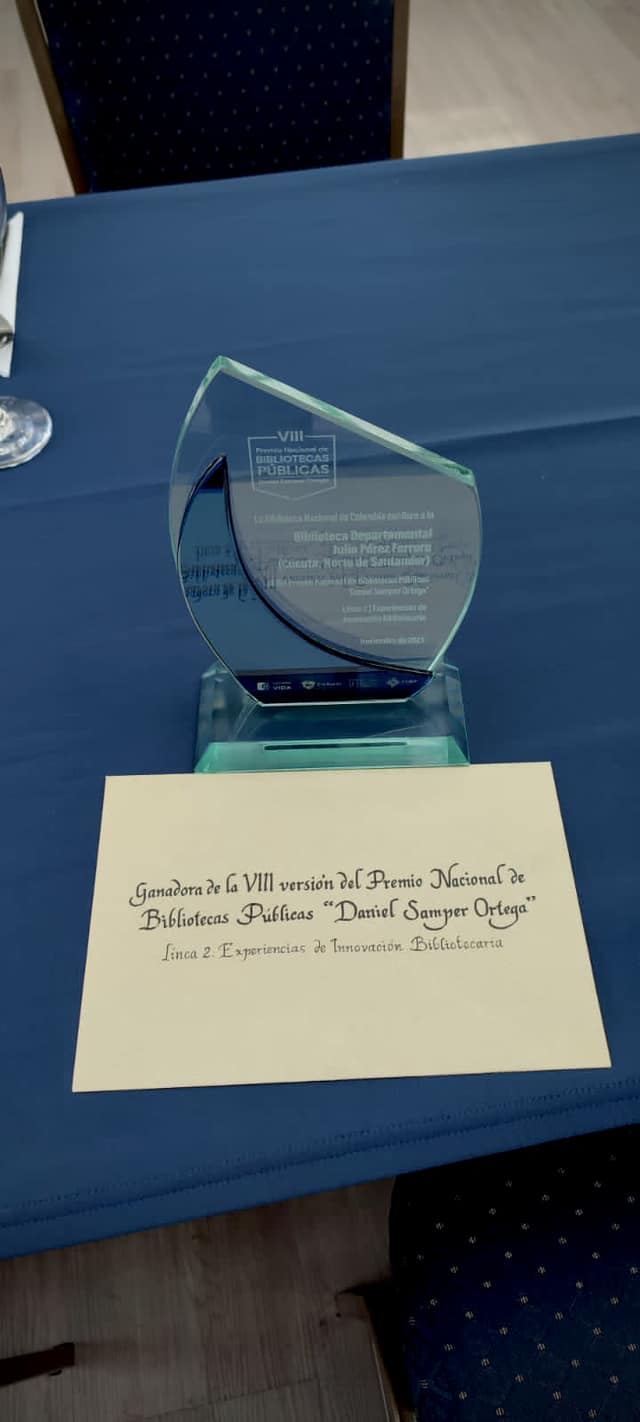 VIII
Premio Nacional de
BIBLIOTECAS
PÚBLICAS
Daniel Samper Ortega
La Biblioteca Nacional de Colombia confiere a la
Biblioteca Departamental
Julio Pérez Ferrero
(Cúcuta, Norte de Santander)
Premio Nacional de Bibliotecas Públicas
Samper Ortega"
Línea 2 | Experiencias de
Innovación Bibliotecaria
VIDA
Ganadora de la VIII versión del Premio Nacional de
Bibliotecas Públicas “Daniel Samper Ortega”
Línea 2. Experiencias de Innovación Bibliotecaria